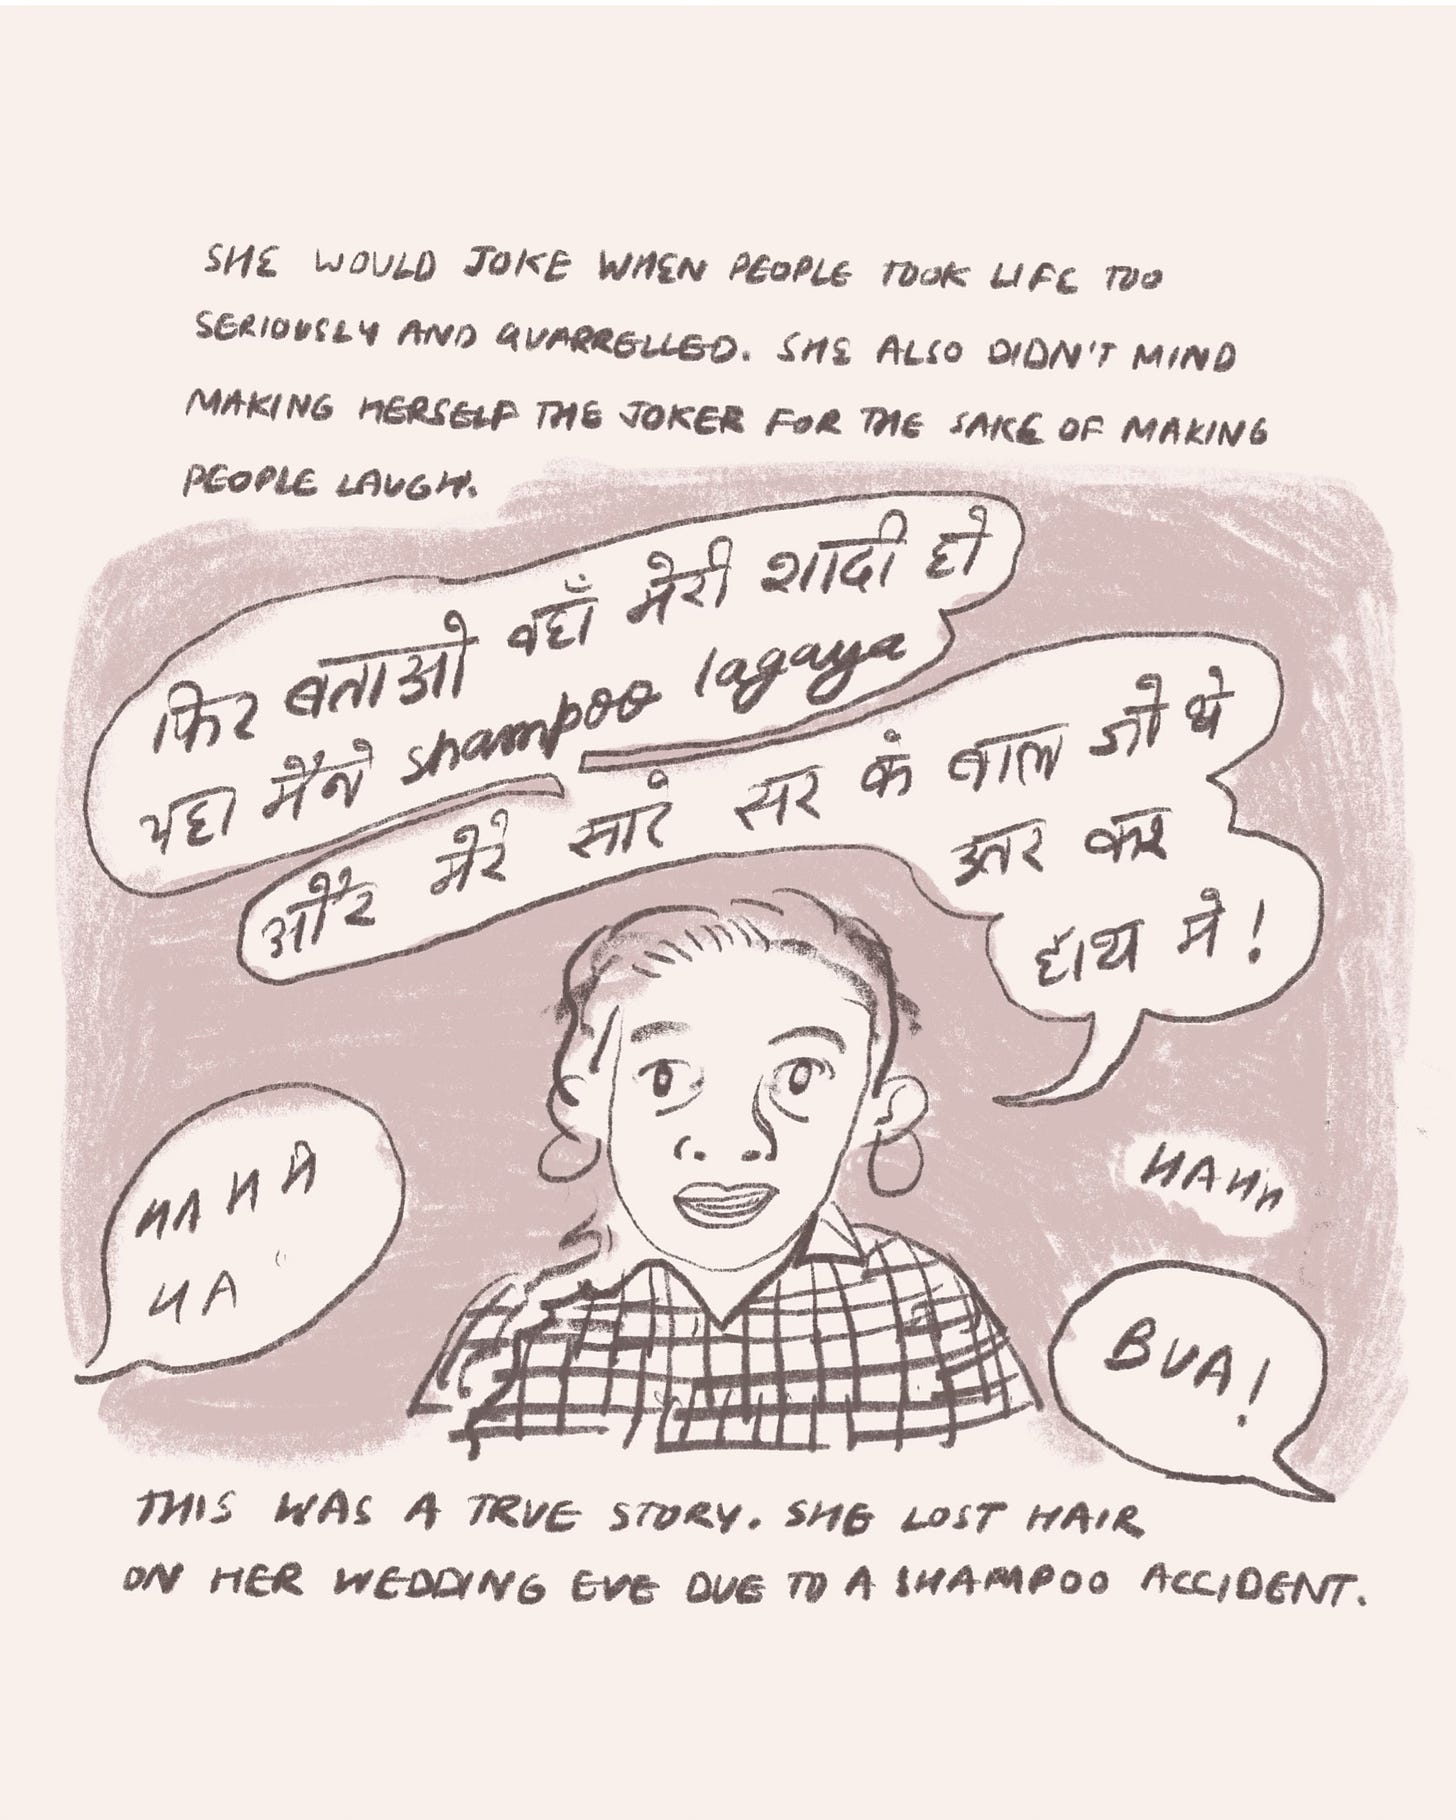 SHE WOULD JOKE WHEN PEOPLE TOOK LIFE TOO
SERIOUSLY AND QUARRELLED. SHE ALSO DIDN'T MIND
MAKING HERSELF THE JOKER FOR THE SAKE OF MAKING
PEOPLE LAUGH.
फिर बताओ वहाँ मेरी शादी हो
यहा मैंने shampoo lagaya
और मेरे सारे सर के बाल जो थे
उतर कर
हाथ मे!
HA HA
HA
HAHA
BUA!
THIS WAS A TRUE STORY. SHE LOST HAIR
ON HER WEDDING EVE DUE TO A SHAMPOO ACCIDENT.